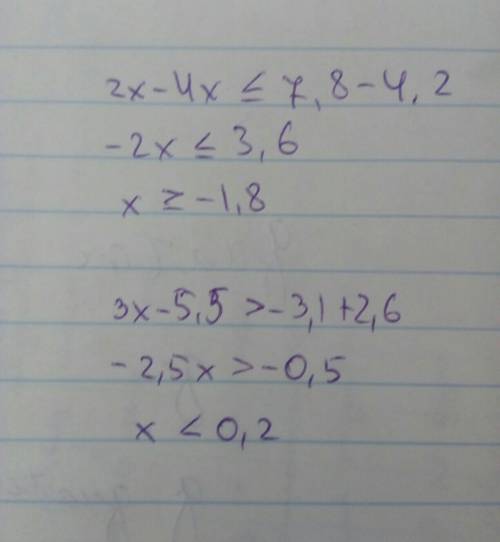 2x-4x ≤ 7,8-4,2
-2x ≤ 3,6
x ≥ -1,8
3x-5,5 >-3,1+2,6
-2,5x >-0,5
x < 0,2